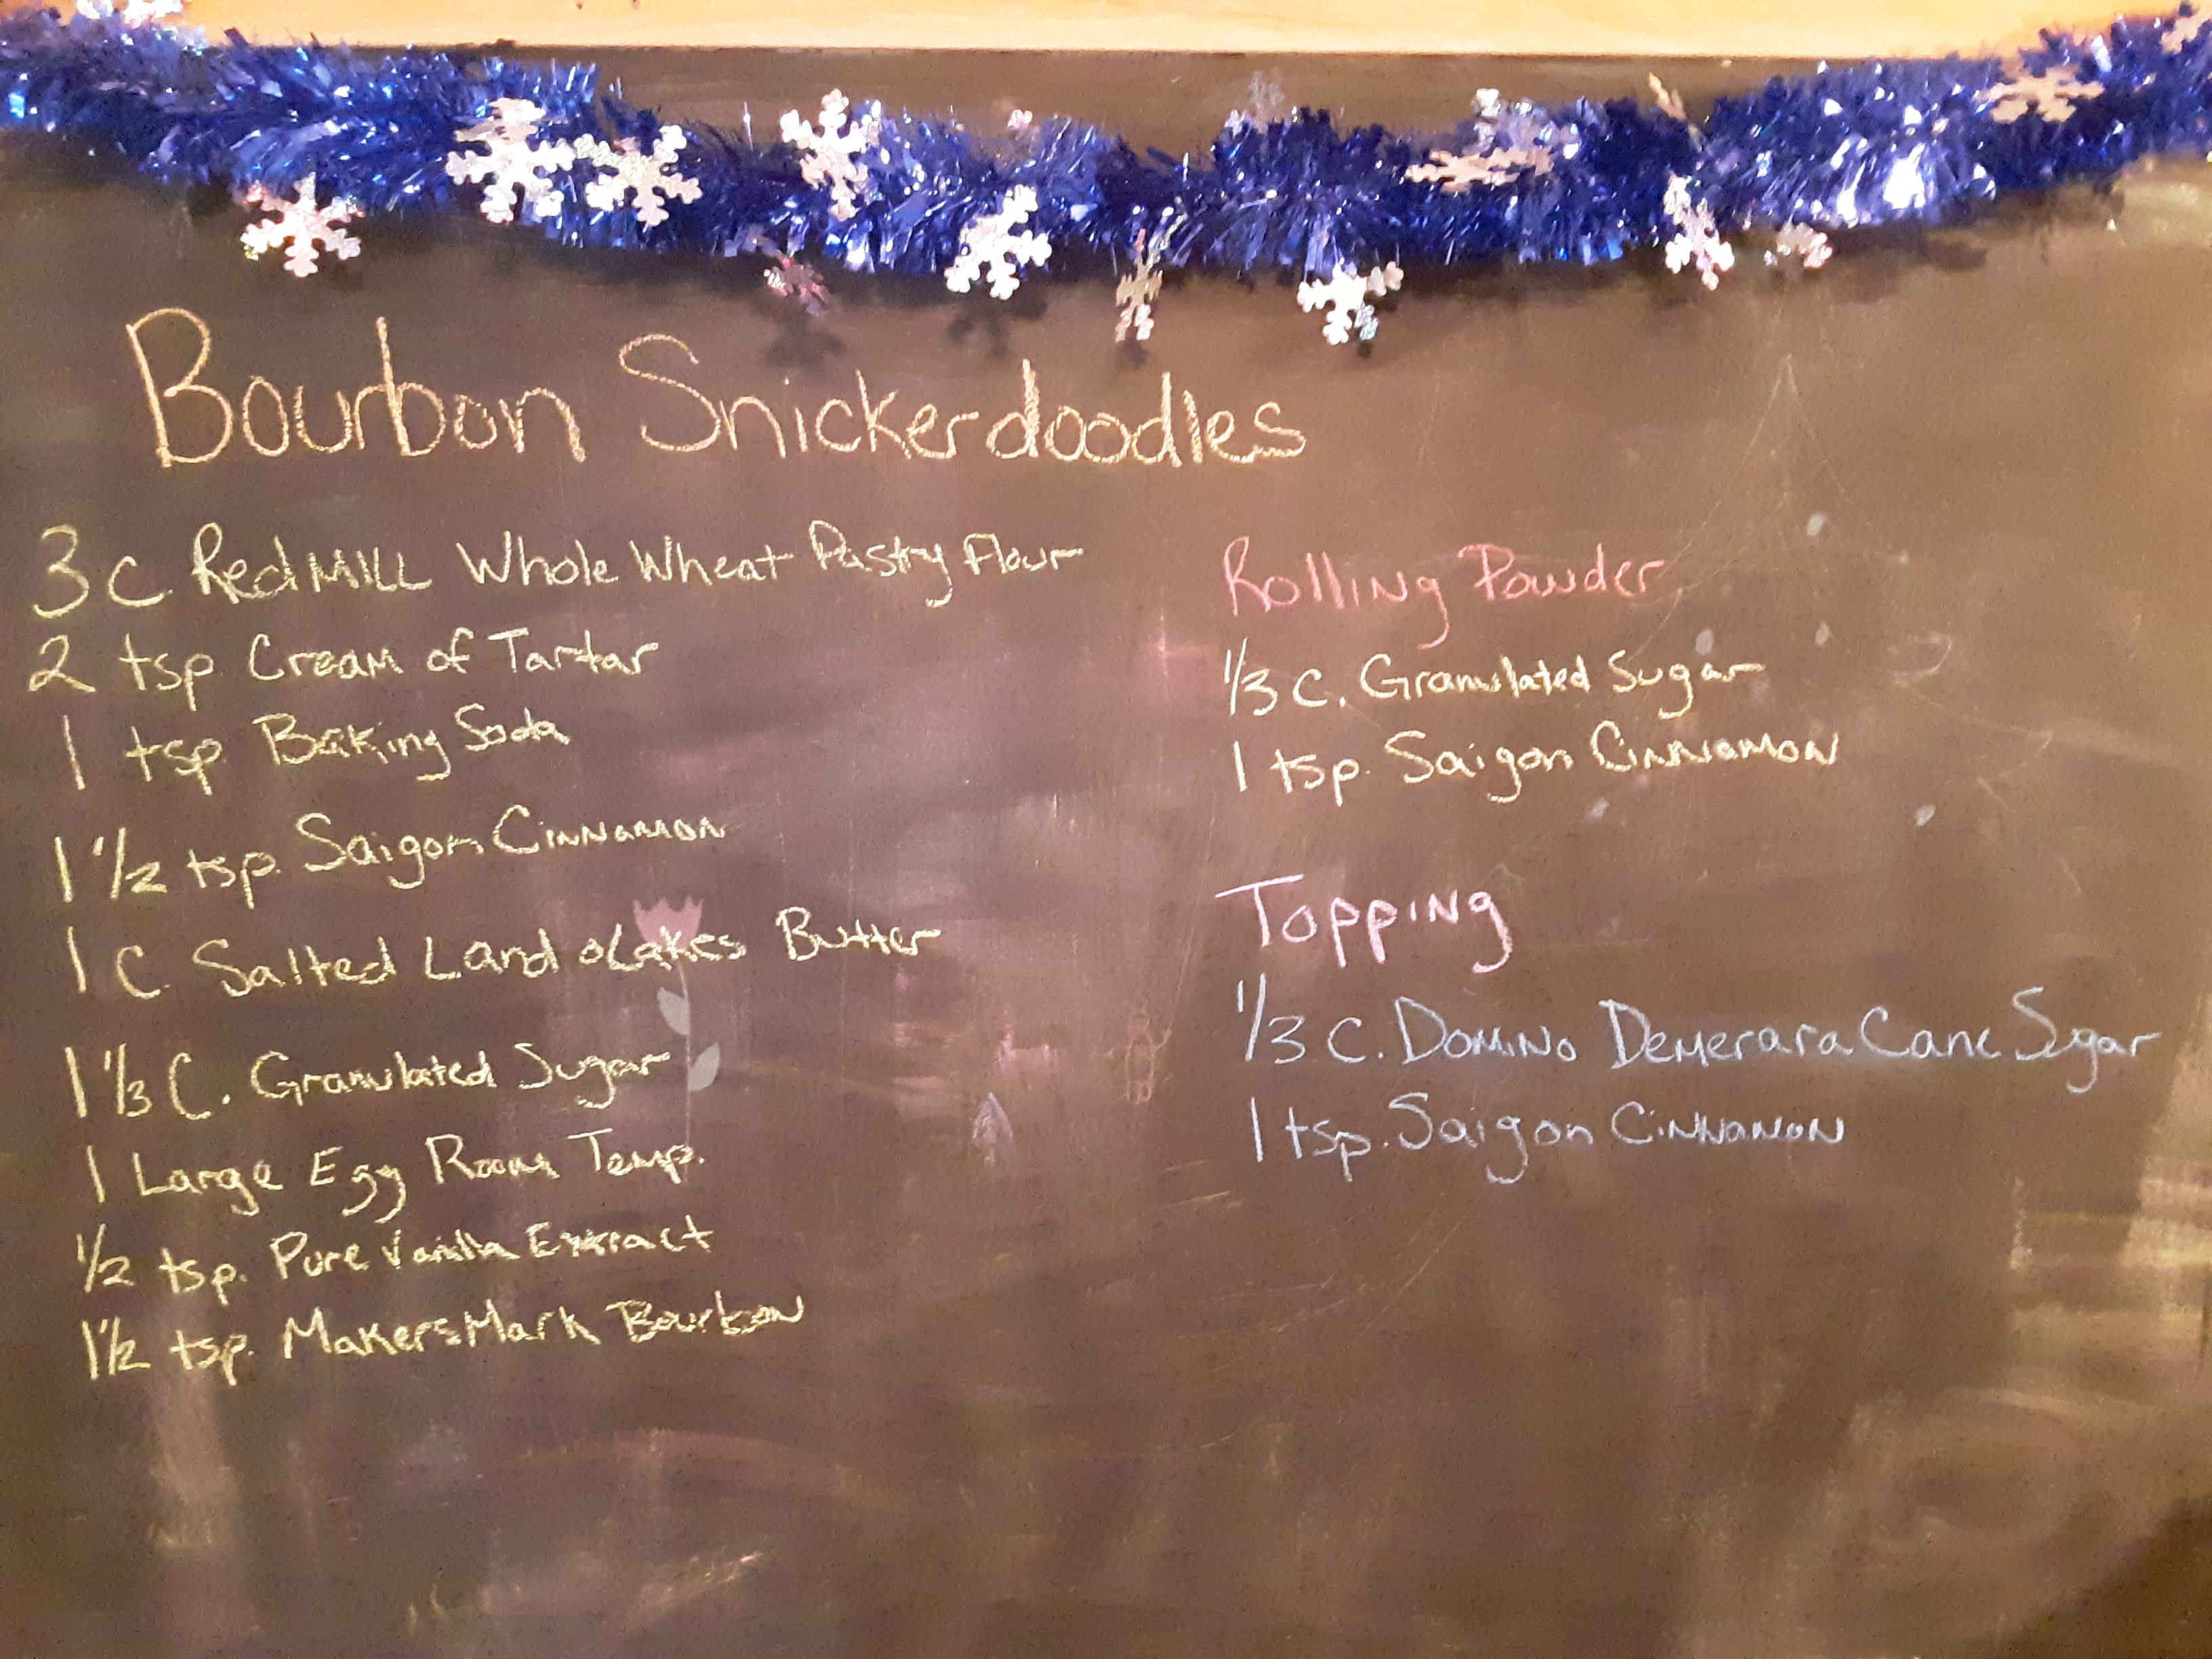 Bourbon Snickerdoodles
3 C. Red MILL Whole Wheat Pastry Flour
2 tsp Cream of Tartar
1 tsp Baking Soda
1 1/2 tsp. Saigon Cinnamon
1 C. Salted Land o Lakes Butter
1 1/3 C. Granulated Sugar
1 Large Egg Room Temp.
1/2 tsp. Pure Vanilla Extract
1 1/2 tsp. Makers Mark Bourbon
Rolling Powder
1/3 C. Granulated Sugar
1 tsp. Saigon Cinnamon
Topping
1/3 C. Domino Demerara Cane Sugar
1 tsp. Saigon Cinnamon